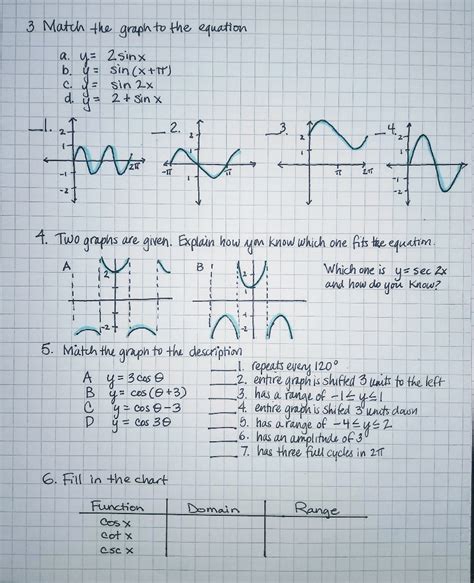 3 Match the graph to the equation
a. y = 2 sin x
b. y = sin (x + π)
c. y = sin 2x
d. y = 2 + sin x
1. 2. 3. 4.
2 1 -1 -2 2π
2 1 -π π
2 1 π 2π
2 1 -2
4. Two graphs are given. Explain how you know which one fits the equation.
A 2 -2
B 2 -1 -2
Which one is y = sec 2x
and how do you know?
5. Match the graph to the description
A y = 3 cos θ
B y = cos (θ + 3)
C y = cos θ - 3
D y = cos 3θ
1. repeats every 120°
2. entire graph is shifted 3 units to the left
3. has a range of -1 ≤ y ≤ 1
4. entire graph is shifted 3 units down
5. has a range of -4 ≤ y ≤ 2
6. has an amplitude of 3
7. has three full cycles in 2π
6. Fill in the chart
Function Domain Range
cos x
cot x
csc x